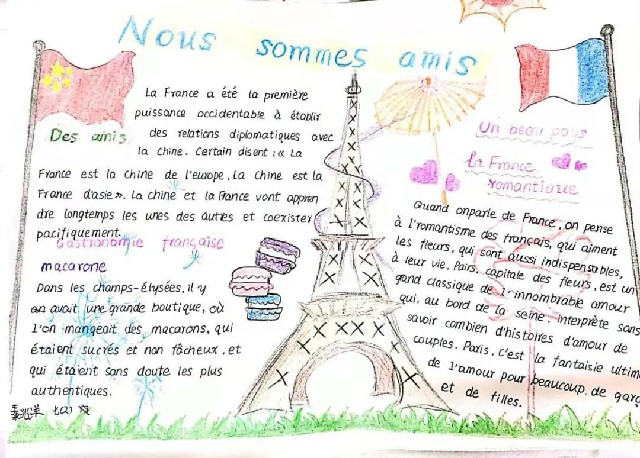 Nous sommes amis
La France a été la première
puissance accidentable à établir
Des amis
des relations diplomatiques avec
la chine. Certain disent : « La
France est la chine de l'europe, La chine est la
France d'asie ». La chine et la France vont appren
dre longtemps les unes des autres et coexister
pacifiquement.
Gastronomie française
macarone
Dans les champs-élysées, il y
en avait une grande boutique, où
l'on mangeait des macarons, qui
étaient sucrés et non fâcheux, et
qui étaient sans doute les plus
authentiques.
Un beau pays
la France
romantique
Quand onparle de France, on pense
à l'romantisme des français, qui aiment
les fleurs, qui sont aussi indispensables,
à leur vie. Paris, capitale des fleurs, est un
grand classique de l'innombrable amour
qui, au bord de la seine, interprète sans
savoir combien d'histoires d'amour de
couples. Paris, c'est la fantaisie ultim
de l'amour pour beaucoup de garç
et de filles.